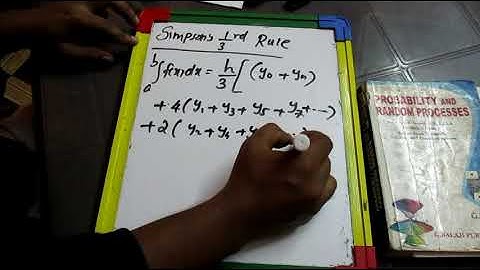 Simpson's 1/3 rd Rule
b∫a f(x)dx = h/3 [ (y0 + yn)
+ 4 ( y1 + y3 + y5 + y7 + ---- )
+ 2 ( y2 + y4 + y
PROBABILITY AND
RANDOM PROCESSES